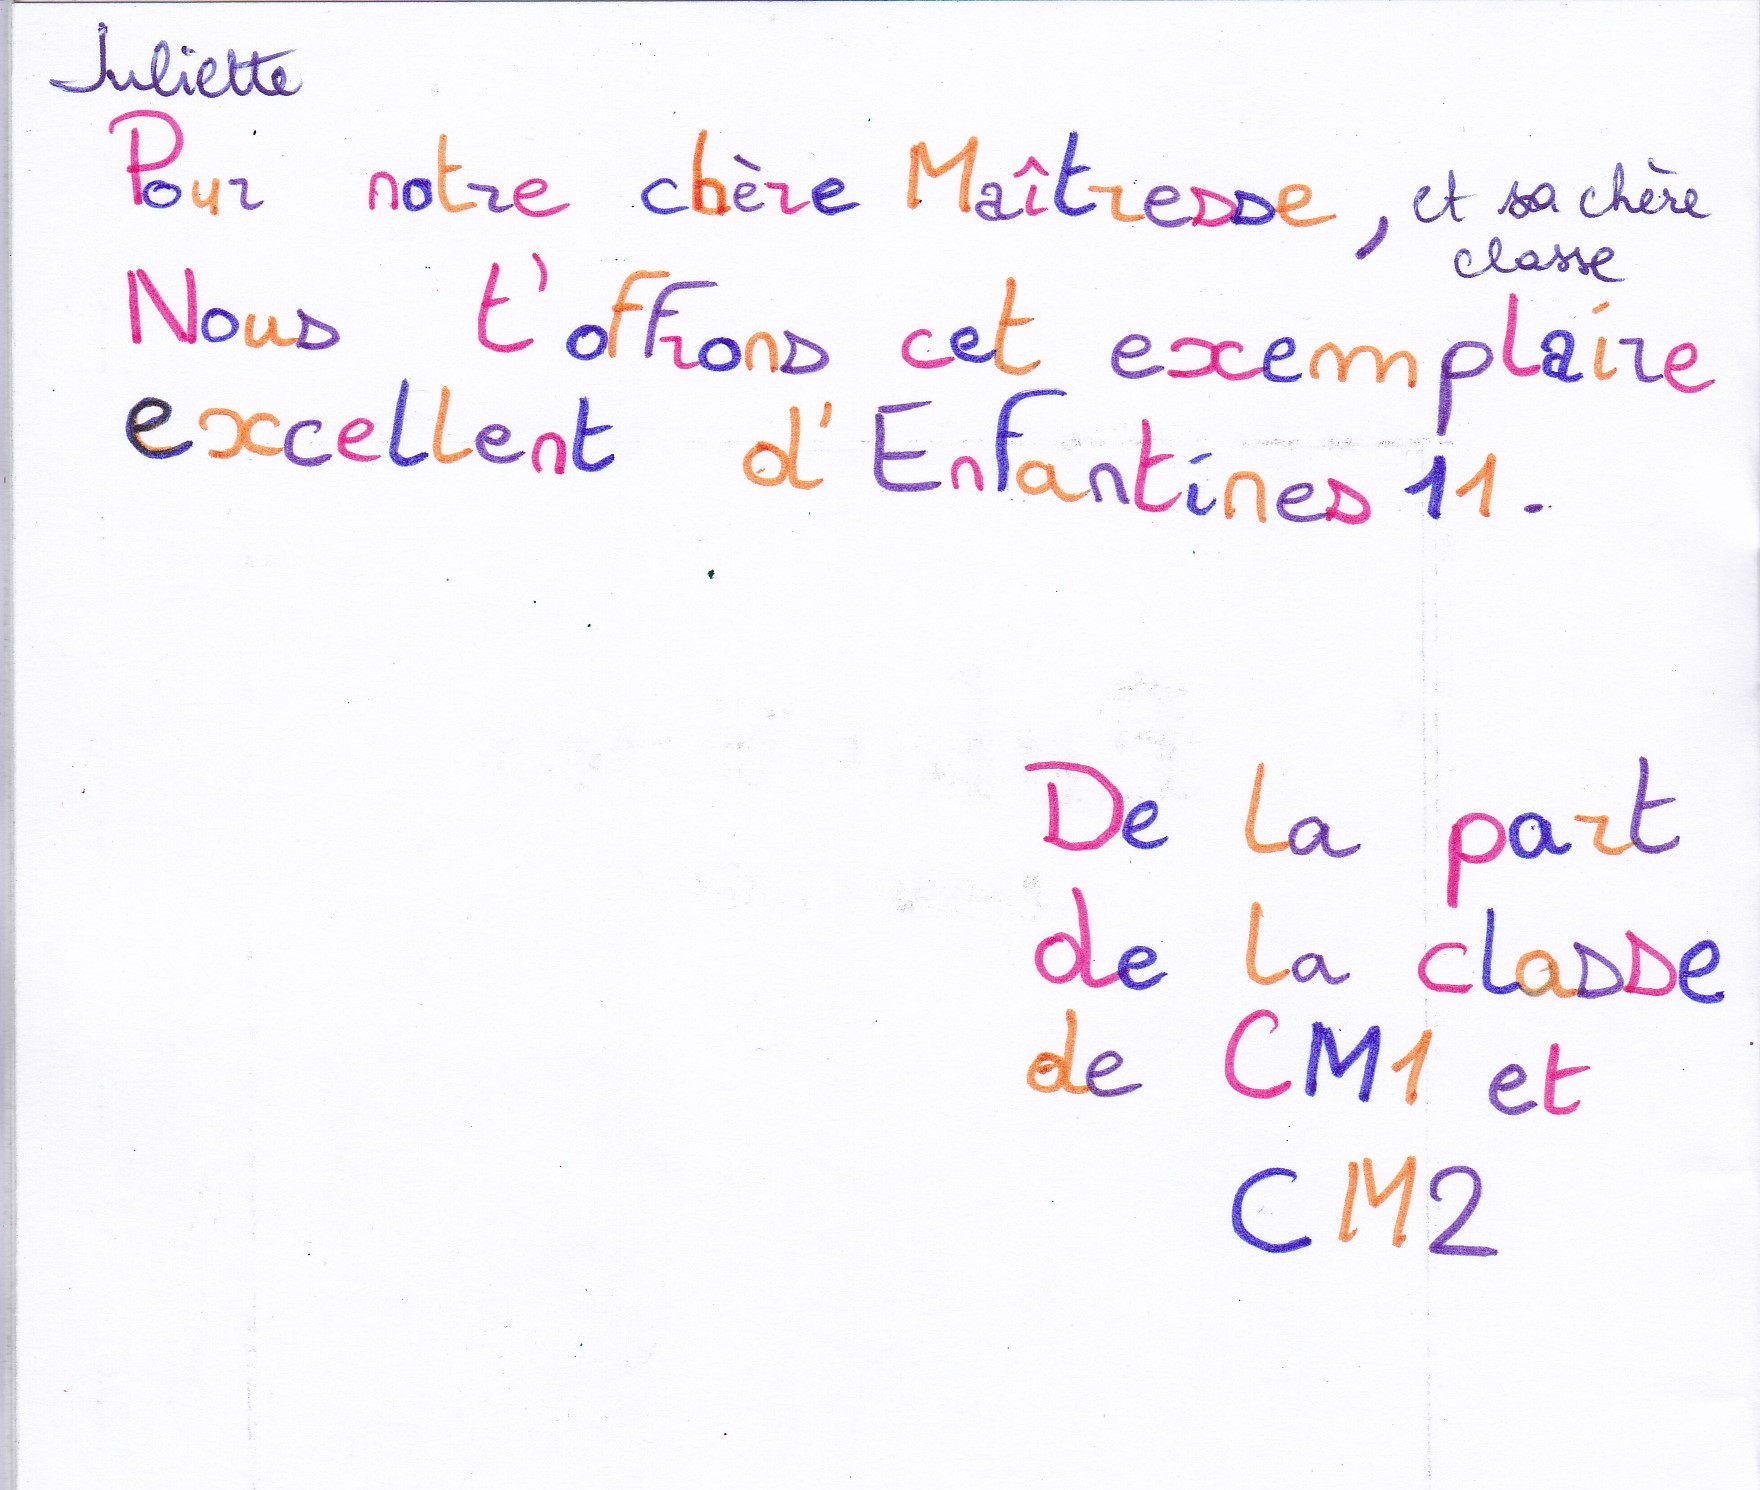 Juliette
Pour notre chère Maîtresse, et sa chère
classe
Nous t'offrons cet exemplaire
excellent d'Enfantines 11.
De la part
de la classe
de CM1 et
CM2